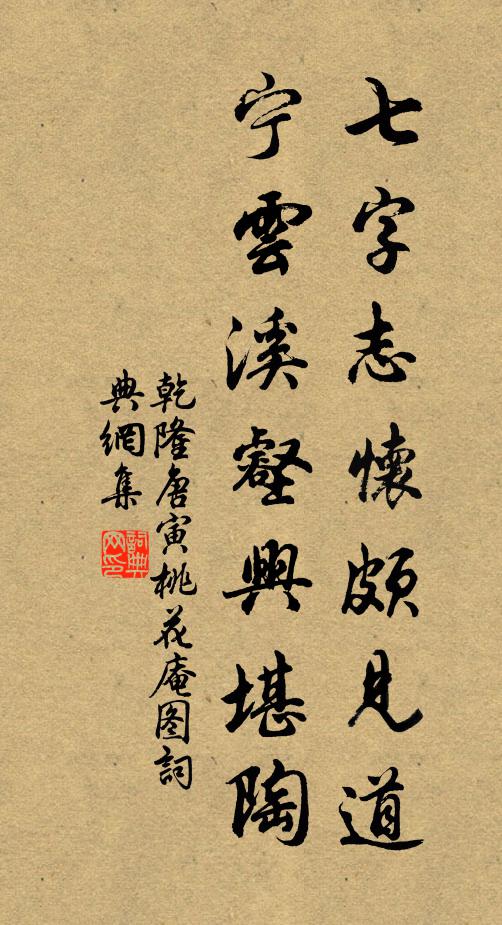 七字志懷頗見道
宁雲溪壑興堪陶
乾隆唐寅桃花庵图詞
典網集
詞典
网印